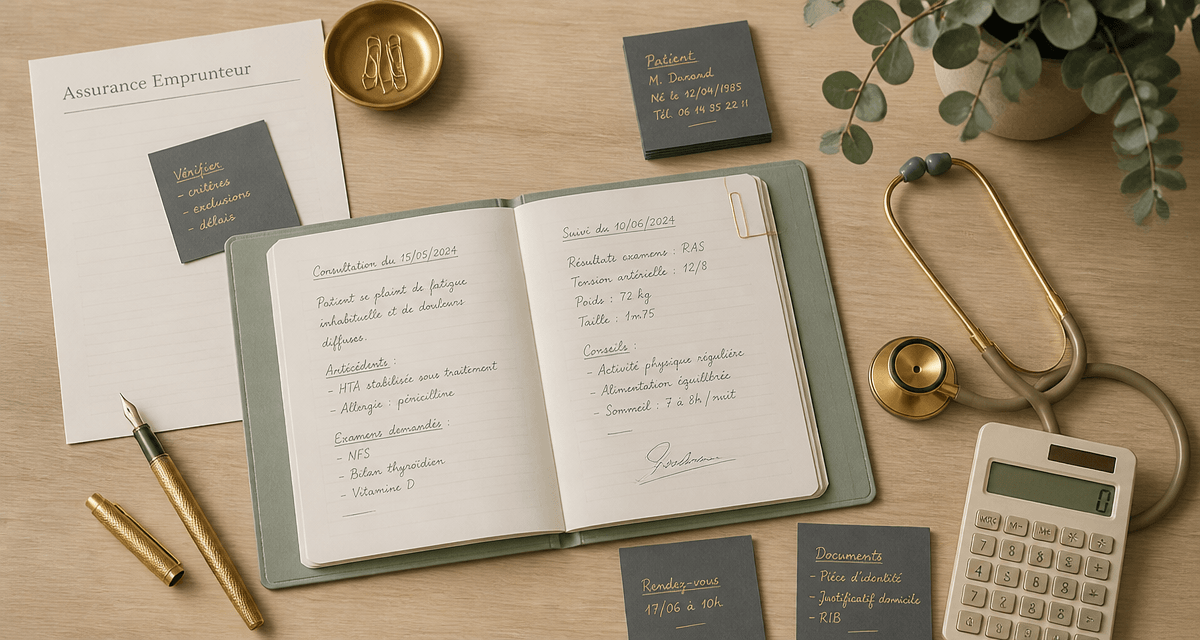 Assurance Emprunteur
Vérifier
- critères
- exclusions
- délais
Patient
M. Durand
Né le 12/04/1985
Tél. 06 14 95 22 11
Consultation du 15/05/2024
Patient se plaint de fatigue
inhabituelle et de douleurs
diffuses.
Antécédents :
- HTA stabilisée sous traitement
- Allergie : pénicilline
Examens demandés :
- NFS
- Bilan thyroïdien
- Vitamine D
Suivi du 10/06/2024
Résultats examens : RAS
Tension artérielle : 12/8
Poids : 72 kg
Taille : 1m75
Conseils :
- Activité physique régulière
- Alimentation équilibrée
- Sommeil : 7 à 8h / nuit
Rendez-vous
17/06 à 10h
Documents
- Pièce d'identité
- Justificatif domicile
- RIB
0